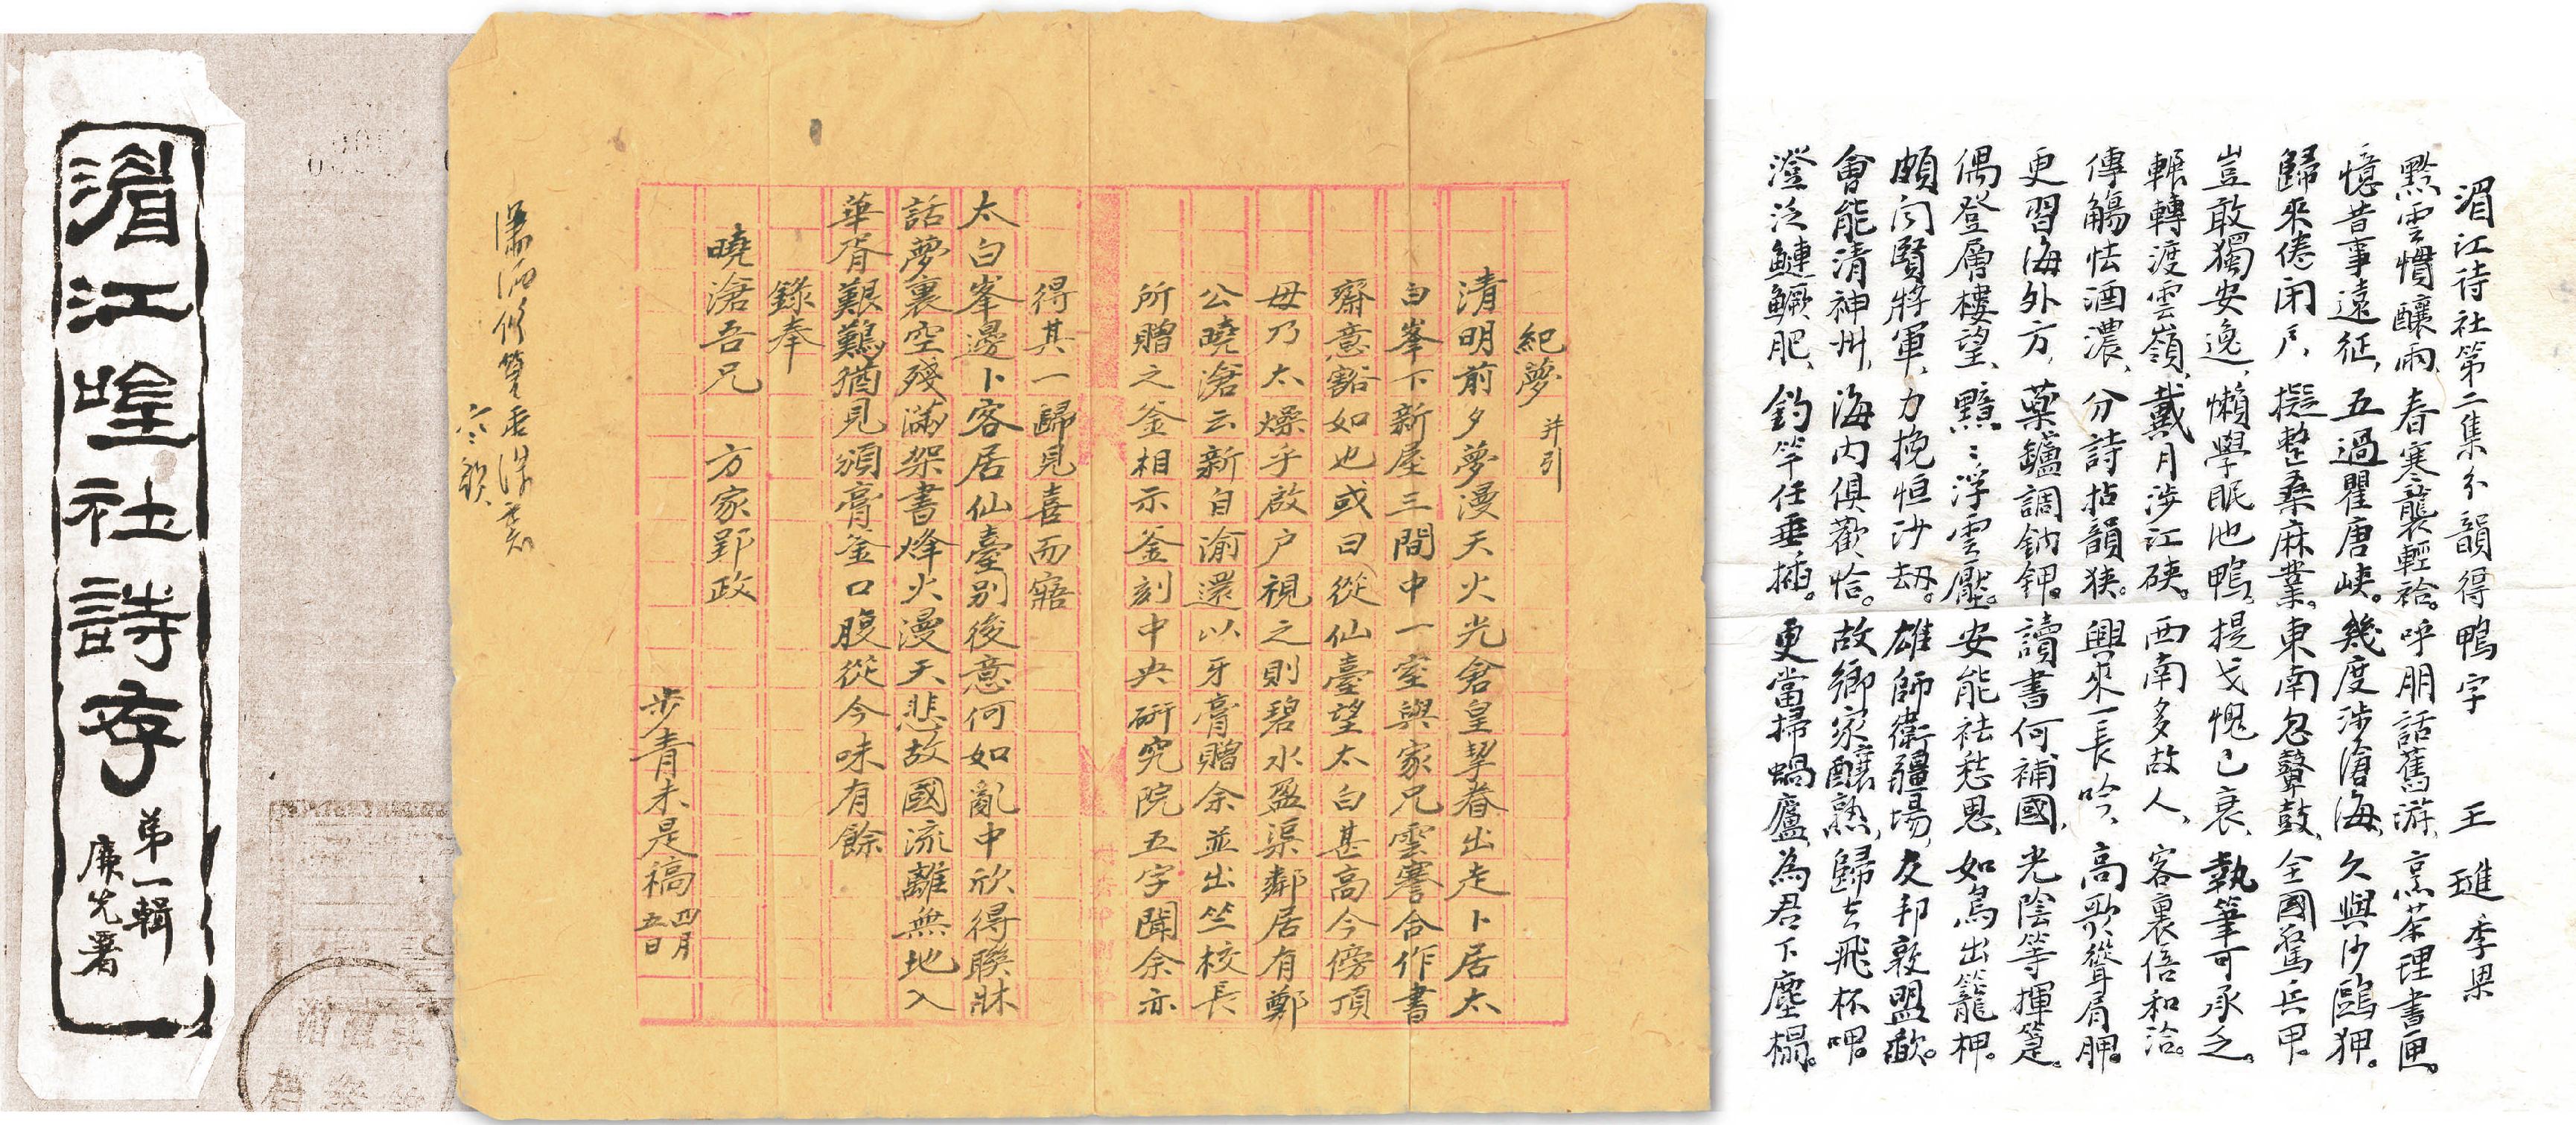 湄江唫社詩存
第一輯
廉先署
紀夢 并引
清明前夕夢漫天火光倉皇挈眷出走卜居太
白峯下新屋三間中一室與家兄雲騫合作書
齋意豁如也或曰從仙臺望太白甚高今傍頂
毋乃太燥乎啟户視之則碧水盈渠鄰居有鄭
公曉滄云新自渝還以牙膏贈余並出竺校長
所贈之釜相示釜刻中央研究院五字聞余亦
得其一歸見喜而寤
太白峯邊卜客居仙臺別後意何如亂中欣得聯牀
話夢裏空殘滿架書烽火漫天悲故國流離無地入
華胥艱難猶見頒膏釜口腹從今味有餘
錄奉
曉滄吾兄 方家郢政
步青未是稿 四月五日
湄江待社第二集分韻得鴨字 王璡季梁
黔雲慣釀雨、春寒襲輕袷。呼朋話舊游、烹茶理書匣。
憶昔事遠征、五過瞿唐峽。幾度涉滄海、久與沙鷗狎。
歸來倦閉户、擬整桑麻業。東南忽鼙鼓、全國奮兵甲。
豈敢獨安逸、懶學眠池鴨。提戈愧已衰、執筆可承乏。
輾轉渡雲嶺、戴月涉江硤。西南多故人、客裏倍和洽。
傳觴怯酒濃、分詩拈韻狹。興來一長吟、高歌聳肩胛。
更習海外方、藥鑪調鈉鉀。讀書何補國、光陰等揮箑。
偶登層樓望、黯〻浮雲壓。安能祛愁思、如鳥出籠柙。
頗聞賢將軍、力挽恒沙劫。雄師衛疆場、友邦敦盟歃。
會能清神州、海内俱歡恰。故鄉家釀熟、歸去飛杯呷。
澄泛鰱鱖肥、釣竿任垂插。更當掃蝸廬、為君下塵榻。